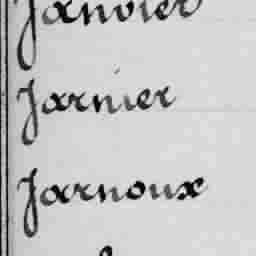 Janvier
Jarnier
Jarnoux